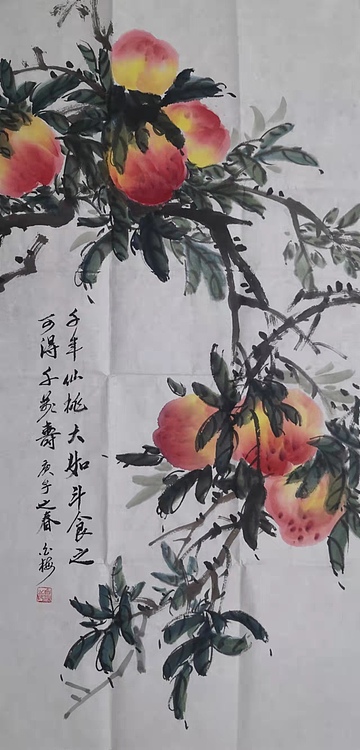 千年仙桃大如斗食之
可得千万寿 庚子之春